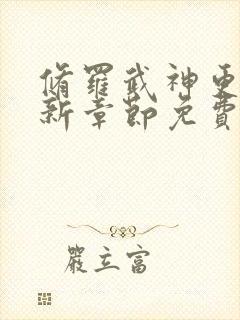 脩羅武神更
新章節免費
嚴立富